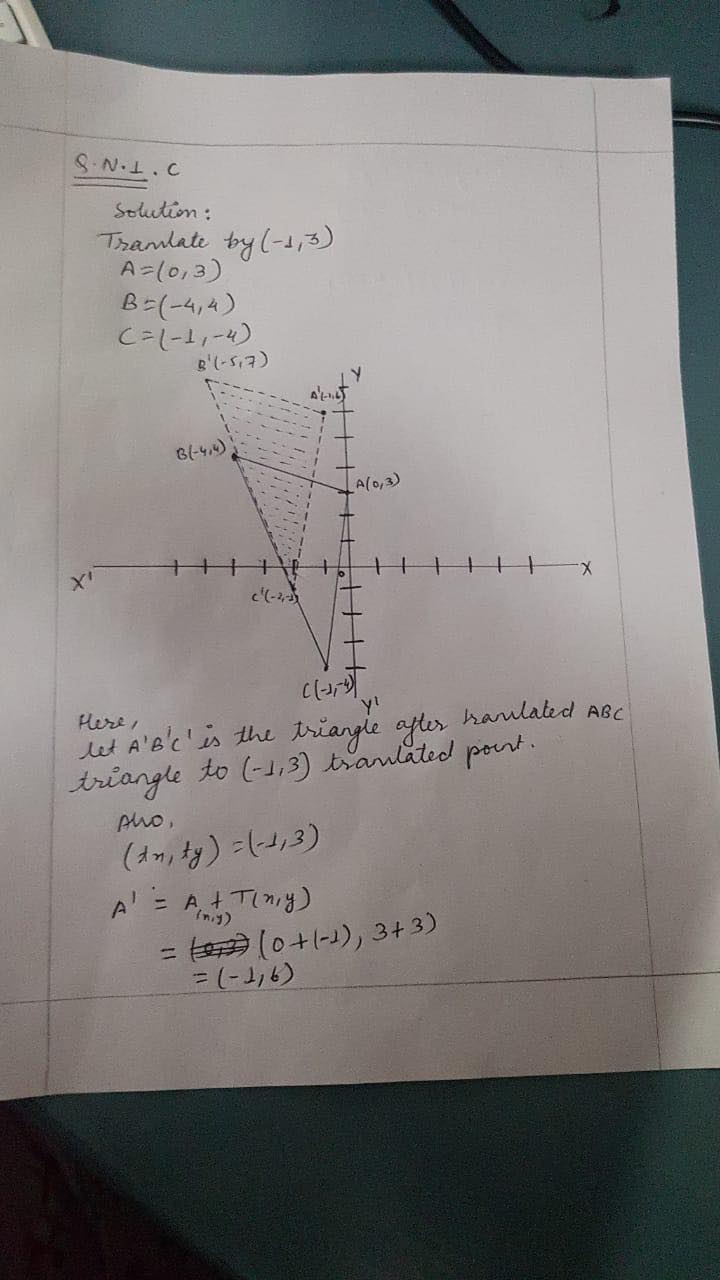 Q.N.1.C
Solution:
Translate by (-1,3)
A=(0,3)
B=(-4,4)
C=(-1,-4)
B'(-5,7)
Y
A'(-1,6)
B(-4,4)
A(0,3)
X'
0
X
C'(-2,-1)
C(-1,-4)
Y'
Here,
let A'B'C' is the triangle after translated ABC
triangle to (-1,3) translated point.
Also,
(tx, ty) = (-1,3)
A' = A(x,y) + T(x,y)
= (0+(-1), 3+3)
= (-1,6)